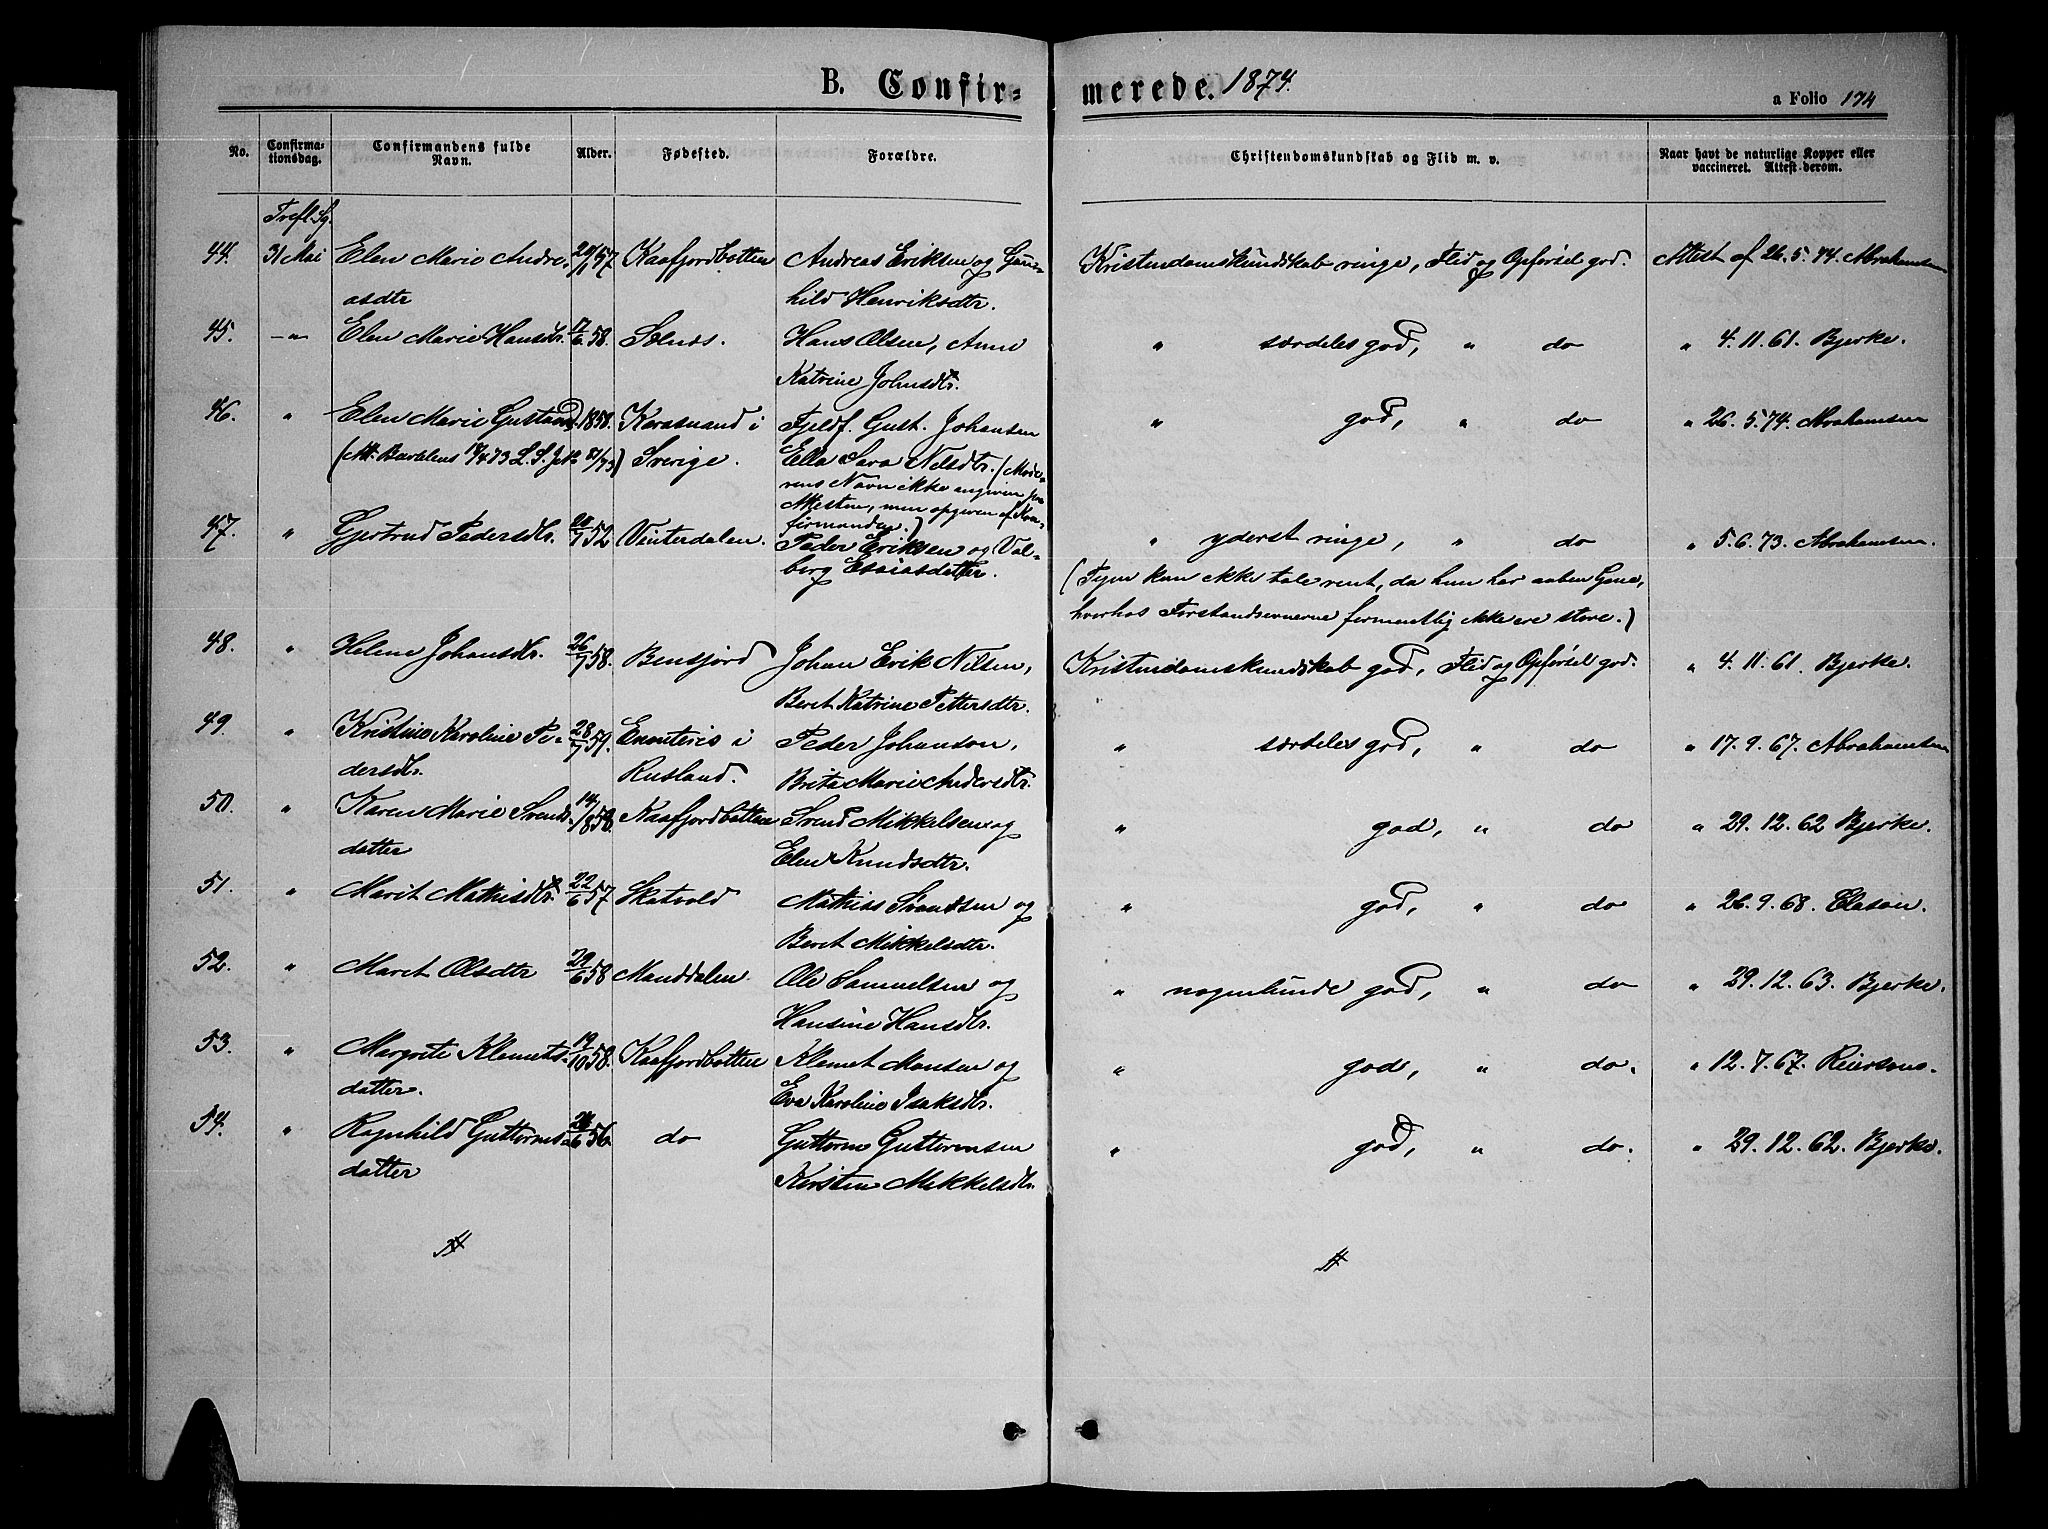 B. Confir= merede. 1874.
a Folio 174
No. Confirma-tionsdag. Confirmandens fulde Navn. Alder. Fødested. Forældre. Christendomskundskab og Flid m. v. Naar havt de naturlige Kopper eller vaccineret. Attest derom.
44. 31 Mai Elen Marie Andre- 57 Kaafjordbotten Andreas Eriksen og Gun- Kristendomskundskab ringe, Flid og Opførsel god. Attest af 26.5.74. Abrahamsen
asdtr hild Henriksdtr.
45. -"- Elen Marie Hansdtr. 17/6 58. Solnes. Hans Olsen, Anne " særdeles god, " do " 4.11.61. Bjerke.
Katrine Johnsdtr.
46. " Elen Marie Gustavsd. 1858. Karasuand i Fjeldf. Gust. Johansen " god, " do " 26.5.74. Abrahamsen
Sverige. Ella Sara Nilsdtr. (Mode-
rens Navn ikke angiven paa
Attesten, men opgiven af Kon-
firmanden.)
47. " Gjertrud Pedersdtr. 52 Vinterdalen. Peder Eriksen og Val- " yderst ringe, " do " 5.6.73. Abrahamsen.
berg Esaiasdatter. (Pigen kan ikke tale rent, da hun har aaben Gane,
hvorhos Forstandsevnerne formentlig ikke ere store.)
48. " Helene Johansdtr. 26/7 58. Bensjord Johan Erik Nilsen, Kristendomskundskab god, Flid og Opførsel god. " 4.11.61. Bjerke.
Beret Katrine Pettersdtr.
49. " Kristine Karoline Pe- 28/7 59. Enonteris i Peder Johanson, " særdeles god, " do " 17.9.67. Abrahamsen
dersdtr. Rusland. Brita Marie Andersdtr.
50. " Karen Marie Svends- 14/8 58. Kaafjordbotten Svend Mikkelsen og " god, " do " 29.12.62 Bjerke.
datter Elen Knudsdtr.
51. " Marit Mathisdtr. 22/6 57 Skatvold Mathias Svendsen og " god, " do " 26.9.68. Clason.
Beret Mikkelsdtr.
52. " Maret Olsdtr 29/6 58 Manddalen. Ole Samuelsen og " nogenlunde god, " do " 29.12.63. Bjerke.
Hansine Hansdtr.
53. " Margrete Klemets- 19/10 58. Kaafjordbotten Klemet Monsen og " god, " do. " 12.7.67. Reiersens.
datter. Eva Karoline Isaksdtr.
54. " Ragnhild Guttorms- 56. do Guttorm Guttormsen " god, " do. " 29.12.62. Bjerke.
datter Kirsten Mikkelsdtr.